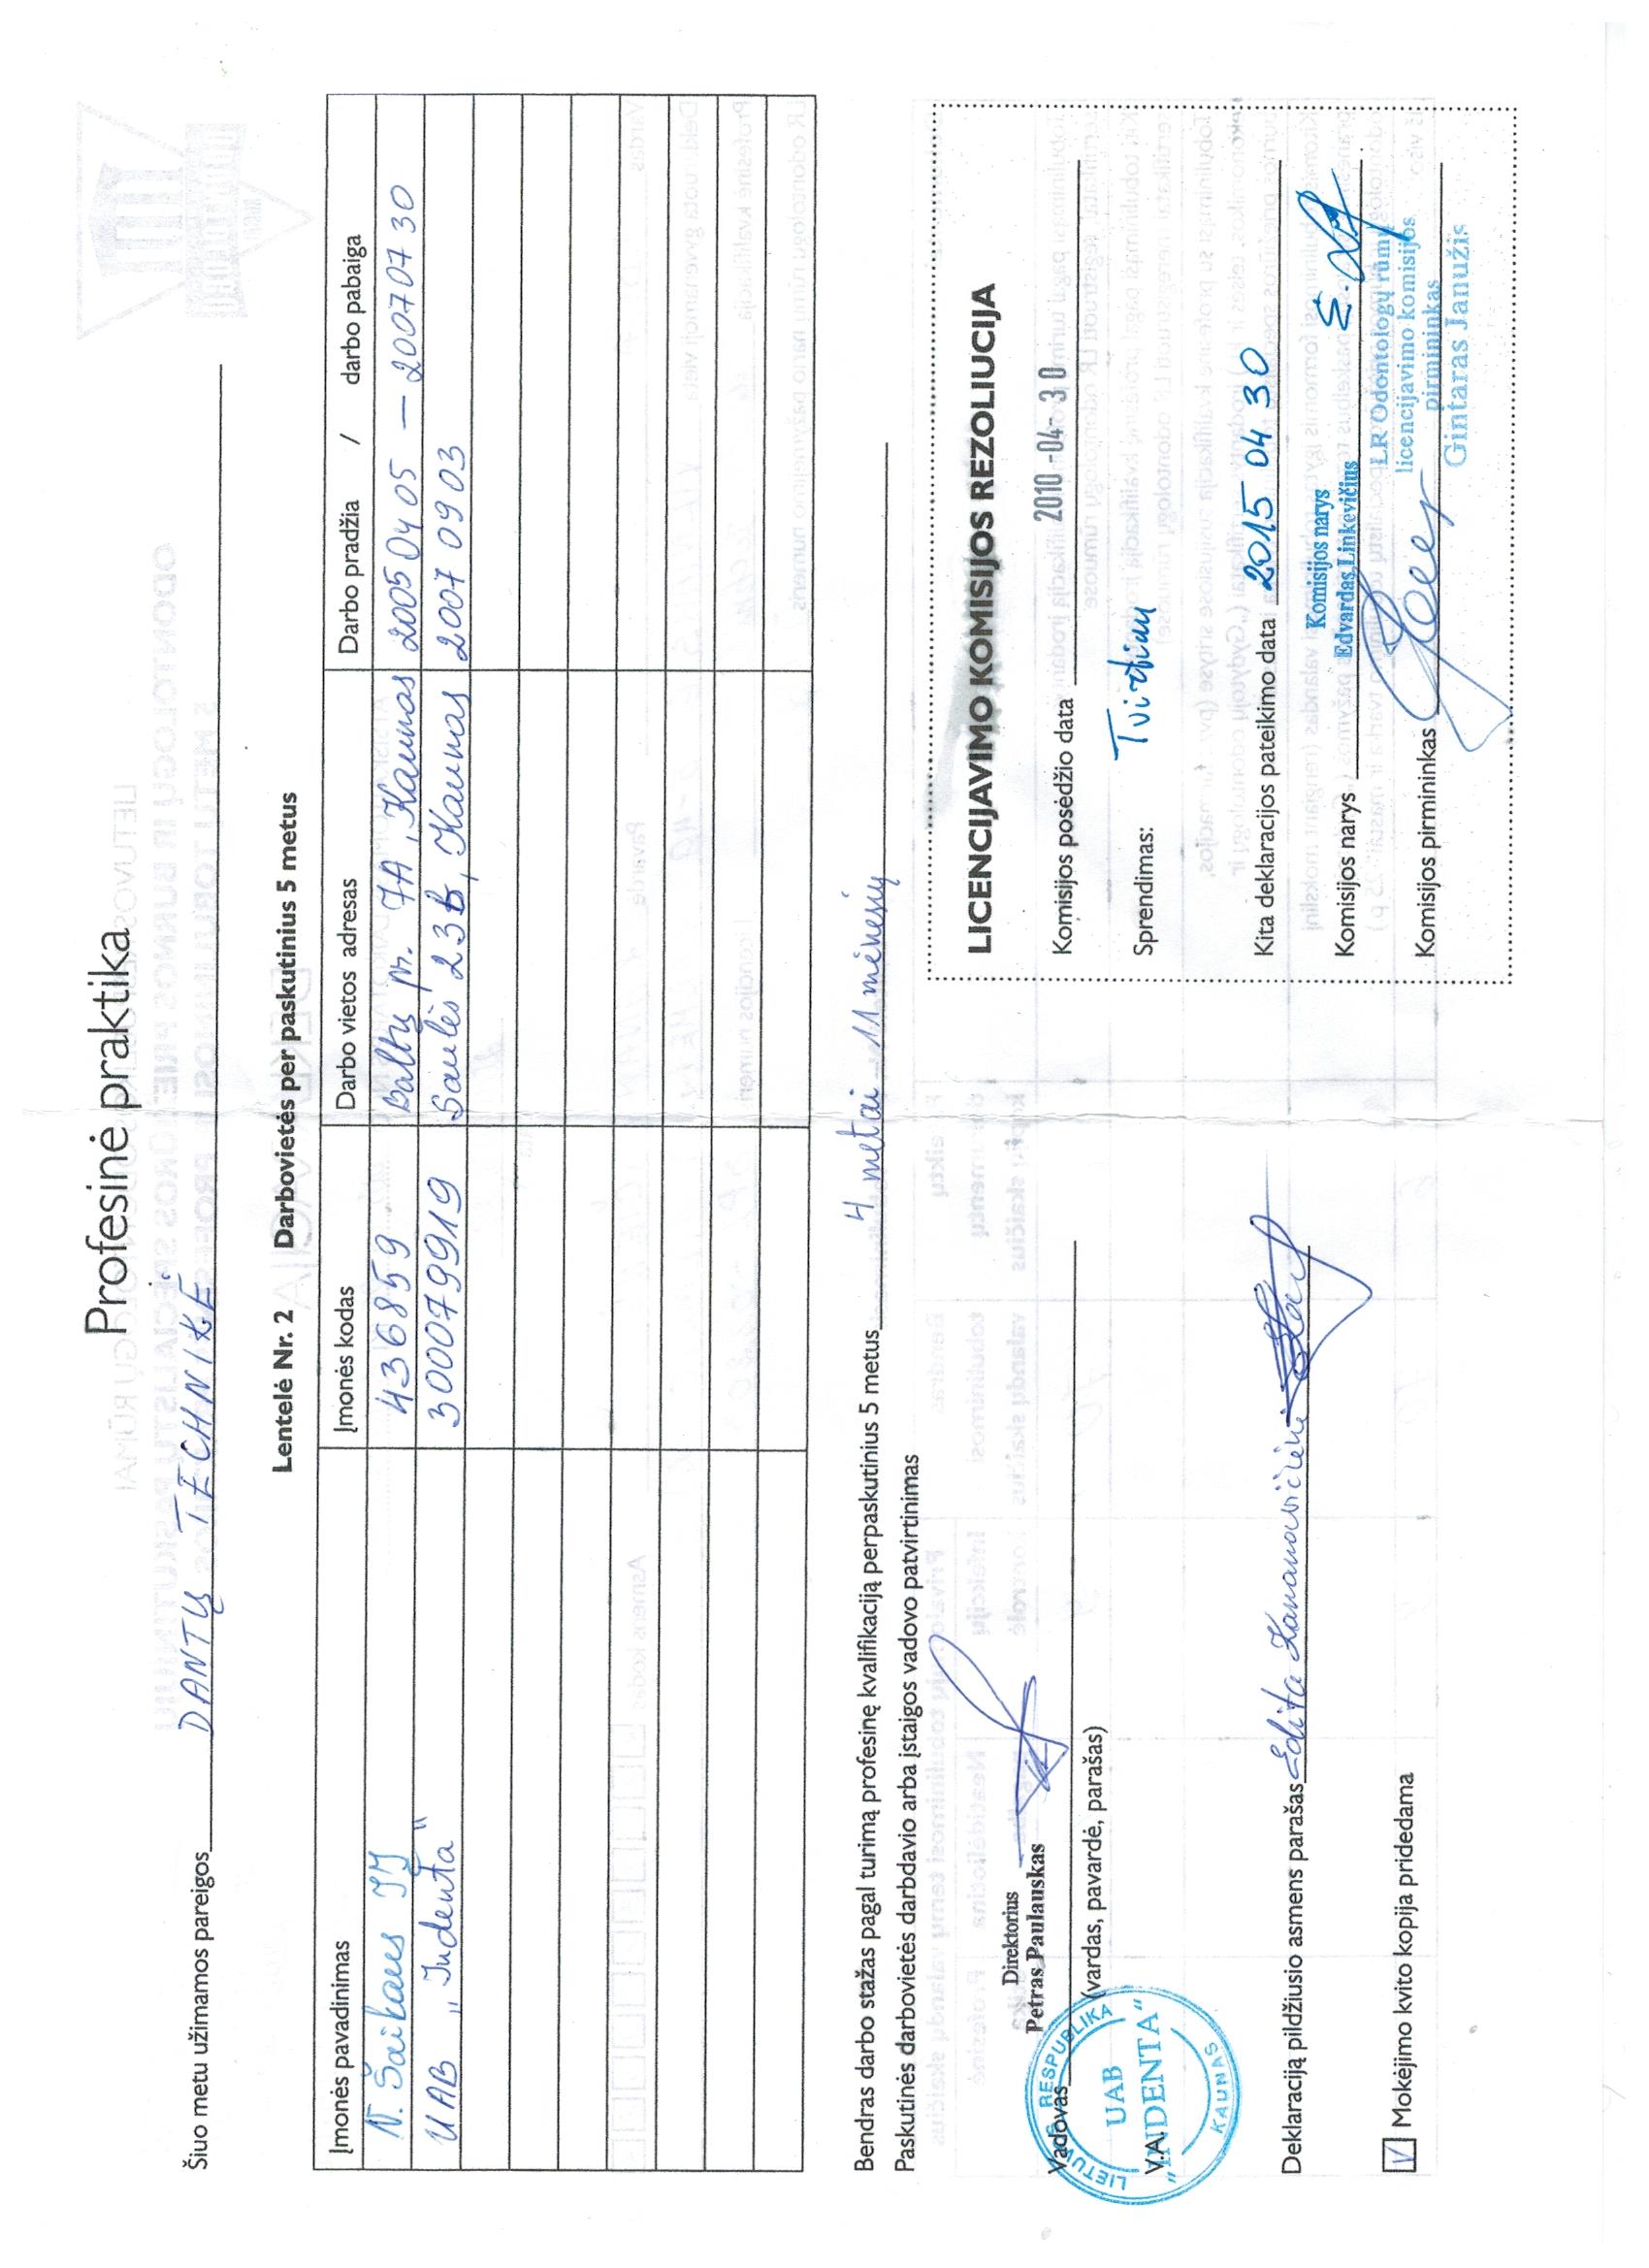 Profesinė praktika
Šiuo metu užimamos pareigos DANTŲ TECHNIKĖ
Lentelė Nr. 2 Darbovietės per paskutinius 5 metus
Įmonės pavadinimas Įmonės kodas Darbo vietos adresas Darbo pradžia / darbo pabaiga
N. Šaikaus IĮ 436859 Baltų pr. 7A, Kaunas 2005 04 05 — 2007 07 30
UAB „Indenta" 300079919 Saulės 23B, Kaunas 2007 09 03
Bendras darbo stažas pagal turimą profesinę kvalifikaciją perpaskutinius 5 metus 4 metai 11 mėnesių
Paskutinės darbovietės darbdavio arba įstaigos vadovo patvirtinimas
Direktorius
Petras Paulauskas
Vadovas
(vardas, pavardė, parašas)
V.A.
LIETUVOS RESPUBLIKA
UAB
"INDENTA"
KAUNAS
Deklaraciją pildžiusio asmens parašas Edita
V Mokėjimo kvito kopija pridedama
LICENCIJAVIMO KOMISIJOS REZOLIUCIJA
Komisijos posėdžio data 2010 -04- 30
Sprendimas:
Kita deklaracijos pateikimo data 2015 04 30
Komisijos narys
Edvardas Linkevičius
Komisijos narys
LR Odontologų rūmų
licencijavimo komisijos
pirmininkas
Gintaras Janužis
Komisijos pirmininkas